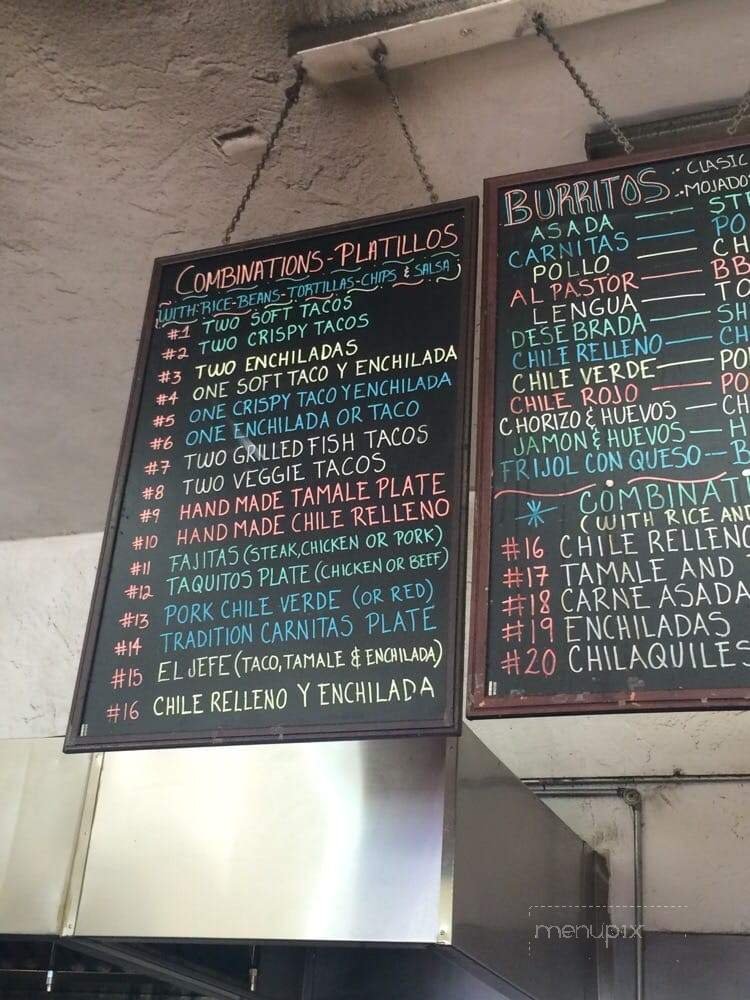 COMBINATIONS-PLATILLOS
WITH: RICE-BEANS-TORTILLAS-CHIPS & SALSA
#1 TWO SOFT TACOS
#2 TWO CRISPY TACOS
#3 TWO ENCHILADAS
#4 ONE SOFT TACO Y ENCHILADA
#5 ONE CRISPY TACO Y ENCHILADA
#6 ONE ENCHILADA OR TACO
#7 TWO GRILLED FISH TACOS
#8 TWO VEGGIE TACOS
#9 HAND MADE TAMALE PLATE
#10 HAND MADE CHILE RELLENO
#11 FAJITAS (STEAK, CHICKEN OR PORK)
#12 TAQUITOS PLATE (CHICKEN OR BEEF)
#13 PORK CHILE VERDE (OR RED)
#14 TRADITION CARNITAS PLATE
#15 EL JEFE (TACO, TAMALE & ENCHILADA)
#16 CHILE RELLENO Y ENCHILADA
BURRITOS
ASADA
CARNITAS
POLLO
AL PASTOR
LENGUA
DESEBRADA
CHILE RELLENO
CHILE VERDE
CHILE ROJO
CHORIZO & HUEVOS
JAMON & HUEVOS
FRIJOL CON QUESO
(WITH RICE AN
#16 CHILE RELLENO
#17 TAMALE AND
#18 CARNE ASADA
#19 ENCHILADAS
#20 CHILAQUILES
menupix